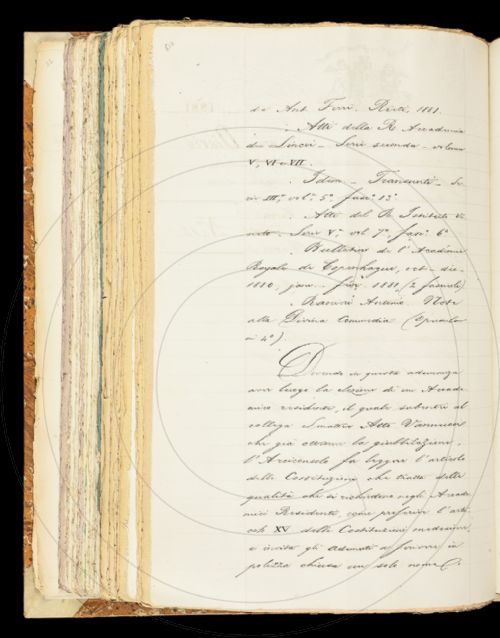 di Ant. Ferri. Rieti, 1881.
. Atti della R. Accademia
dei Lincei - Serie seconda - volumi
V, VI e VII.
. Idem - Transunti - Se-
rie III.ª vol. 5º fasc. 13º
. Atti del R. Istituto Ve-
neto - Serie V.ª vol. 7º, fasc. 6º
. Bulletin de l'Académie
Royale de Copenhague, oct. - dec.
1880, janv. - fév. 1881 (2 fascicoli)
. Note
alla Divina Commedia (Opuscolo
in 4º).
Dovendo in questa adunanza
aver luogo la elezione di un Accade-
mico residente, il quale subentri al
collega Senatore Atto Vannucci
che già ottenne la giubbilazione,
l'Arciconsolo fa leggere l'articolo
delle Costituzioni che tratta delle
qualità che si richiedono negli Accade-
mici Residenti, come prescrive l'arti-
colo XV delle Costituzioni medesime,
e invita gli adunati a scrivere in
polizza chiusa un solo nome